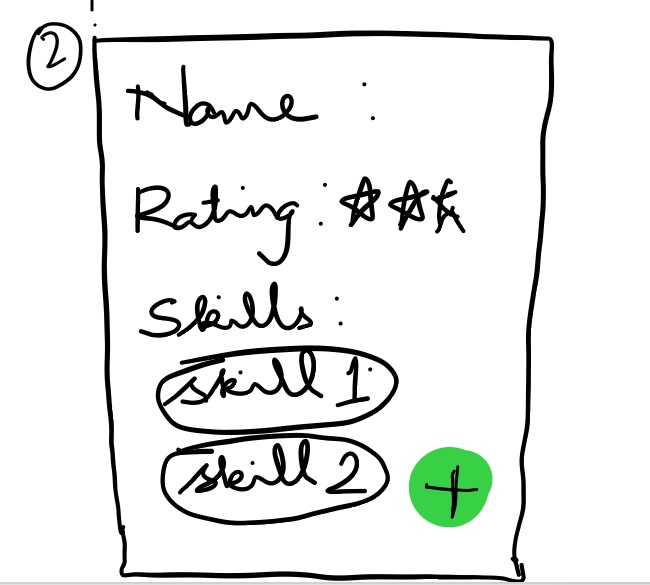 2
Name :
Rating :
Skills :
skill 1
skill 2
+